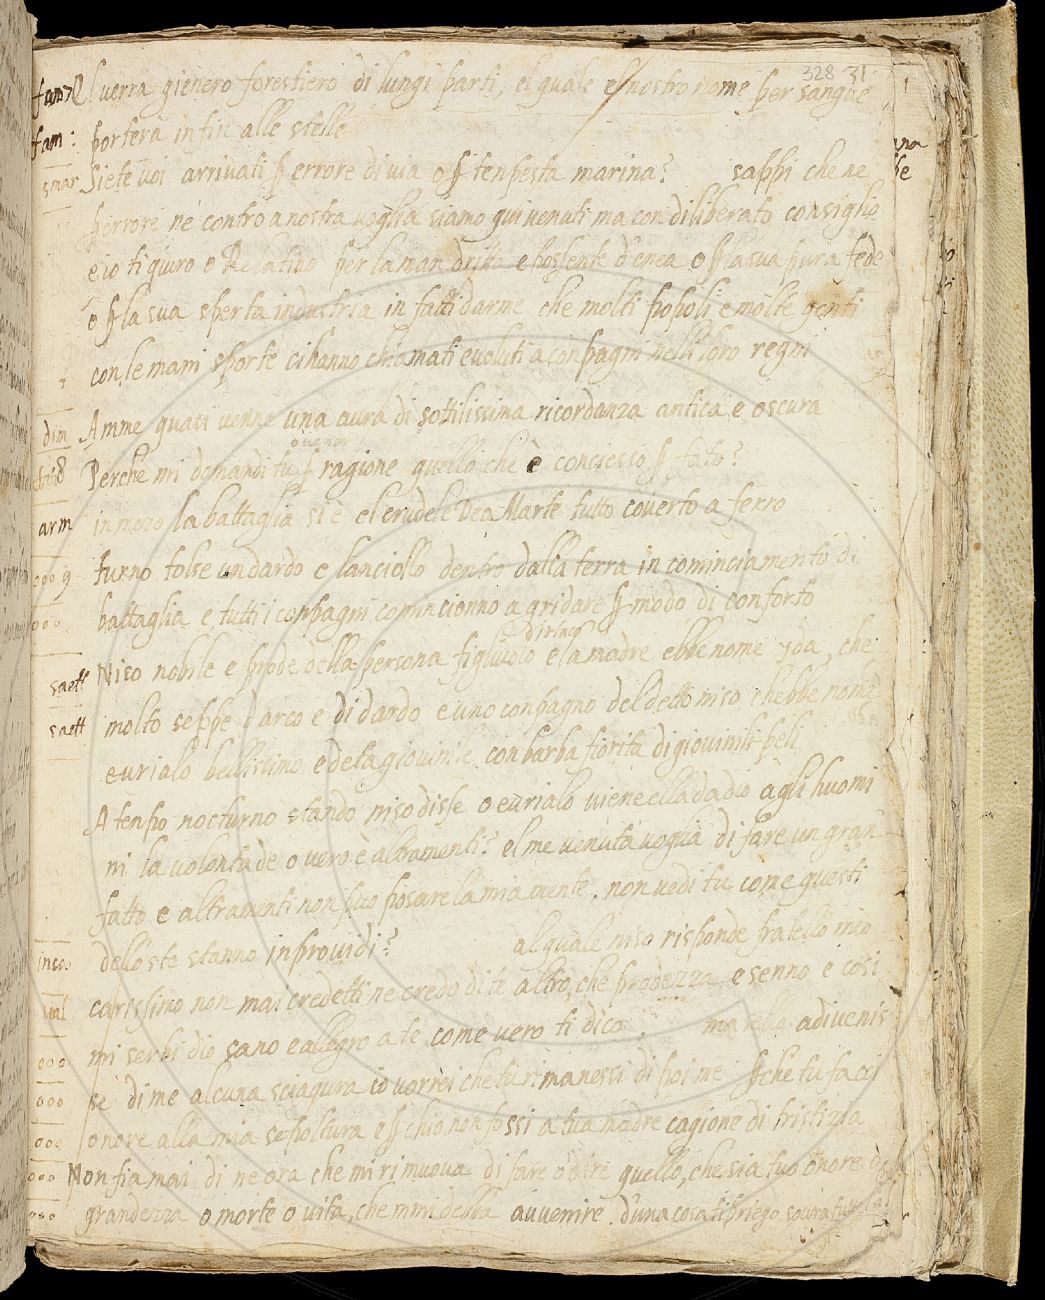 328 31
fam7 El verra gienero forestiero di lungi parti, el quale el nostro nome per sangue
fam: portera infin alle stelle
smar Siete voi arrivati ꝑ errore di via o ꝑ tenpesta marina? sappi che ne
ꝑ errore ne contro a nostra voglia siamo qui venuti ma con diliberato consiglio
e io ti giuro o Re latino per la man dritta e possente d'enea o ꝑ la sua pura fede
o ꝑ la sua sperta industria in fatti darme che molti popoli e molte genti
con le mani sporte ci hanno chiamati e voluti aconpagni nelli loro regni
dim Amme quasi venne una aura di sottilissima ricordanza antica e oscura
8 Perche mi domandi tu ꝑ ragione quello che è concesso ꝑ fato?
arm in mezo la battaglia si è el crudele Dea Marte tutto coverto a ferro
ooo 9 Turno tolse un dardo e lanciollo dentro dalla terra in cominciamento di
ooo battaglia e tutti i conpagni comincionno a gridare ꝑ modo di conforto
d'irtaco
Niso nobile e prode della persona figluolo e la madre ebbe nome yda, che
saett molto seppe d'arco e di dardo e uno conpagno del detto niso chebbe nome
saett eurialo bellissimo e deta giovinile con barba fiorita di giovinili peli
A tenpo nocturno stando niso disse o eurialo viene ella da dio agli huomi
ni la volontade o vero è altramenti? el me venuta voglia di fare un gran
fatto e altramenti non puo posare la mia mente. non vedi tu come questi
dell'oste stanno inprovidi? al quale niso risponde fratello mio
val carissimo non mai credetti ne credo di te altro, che prodezza e senno e cosi
ooo mi serbi dio sano e allegro a te come vero ti dico. ma adivenis
ooo se di me alcuna sciagura io vorrei che tu rimanessi di poi me ꝑ che tu facci
ooo onore alla mia sepoltura e ꝑ chio non fossi a tua madre cagione di tristizia
ooo Non fia mai di ne ora che mi rimuova di fare o dire quello, che sia tuo onore
ooo grandezza o morte o vita, che mmi debba avvenire. d'una cosa ti priego sovra